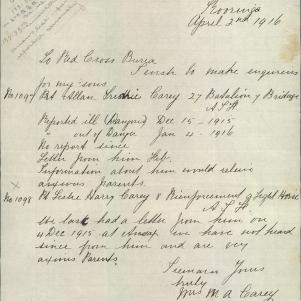 Kooringa
April 2nd 1916
To Red Cross Burea
I wish to make enquires
for my sons
No 1097 Pvt Allan Carey 27 Batalion 7 Bridage
A.I.F.
Reported ill (Dangours) Dec 15 - 1915
" out of Danger Jan 4 - 1916
No report since
Letter from him Feb.
Information about him would relieve
anxious Parents.
No 1098 Pt Leslie Harry Carey 8 Reinforcement 9 Light Horse
A.I.F.
We last had a letter from him on
4 Dec 1915 at we have not heard
since from him and are very
axious Parents.
I remain Yours
truly
Mrs M A Carey